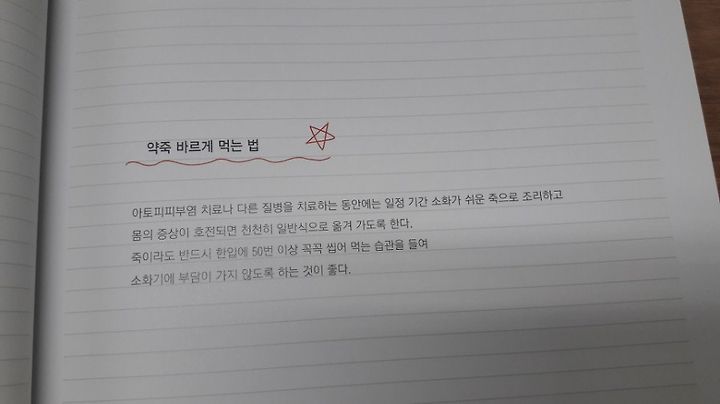 약죽 바르게 먹는 법
아토피피부염 치료나 다른 질병을 치료하는 동안에는 일정 기간 소화가 쉬운 죽으로 조리하고
몸의 증상이 호전되면 천천히 일반식으로 옮겨 가도록 한다.
죽이라도 반드시 한입에 50번 이상 꼭꼭 씹어 먹는 습관을 들여
소화기에 부담이 가지 않도록 하는 것이 좋다.